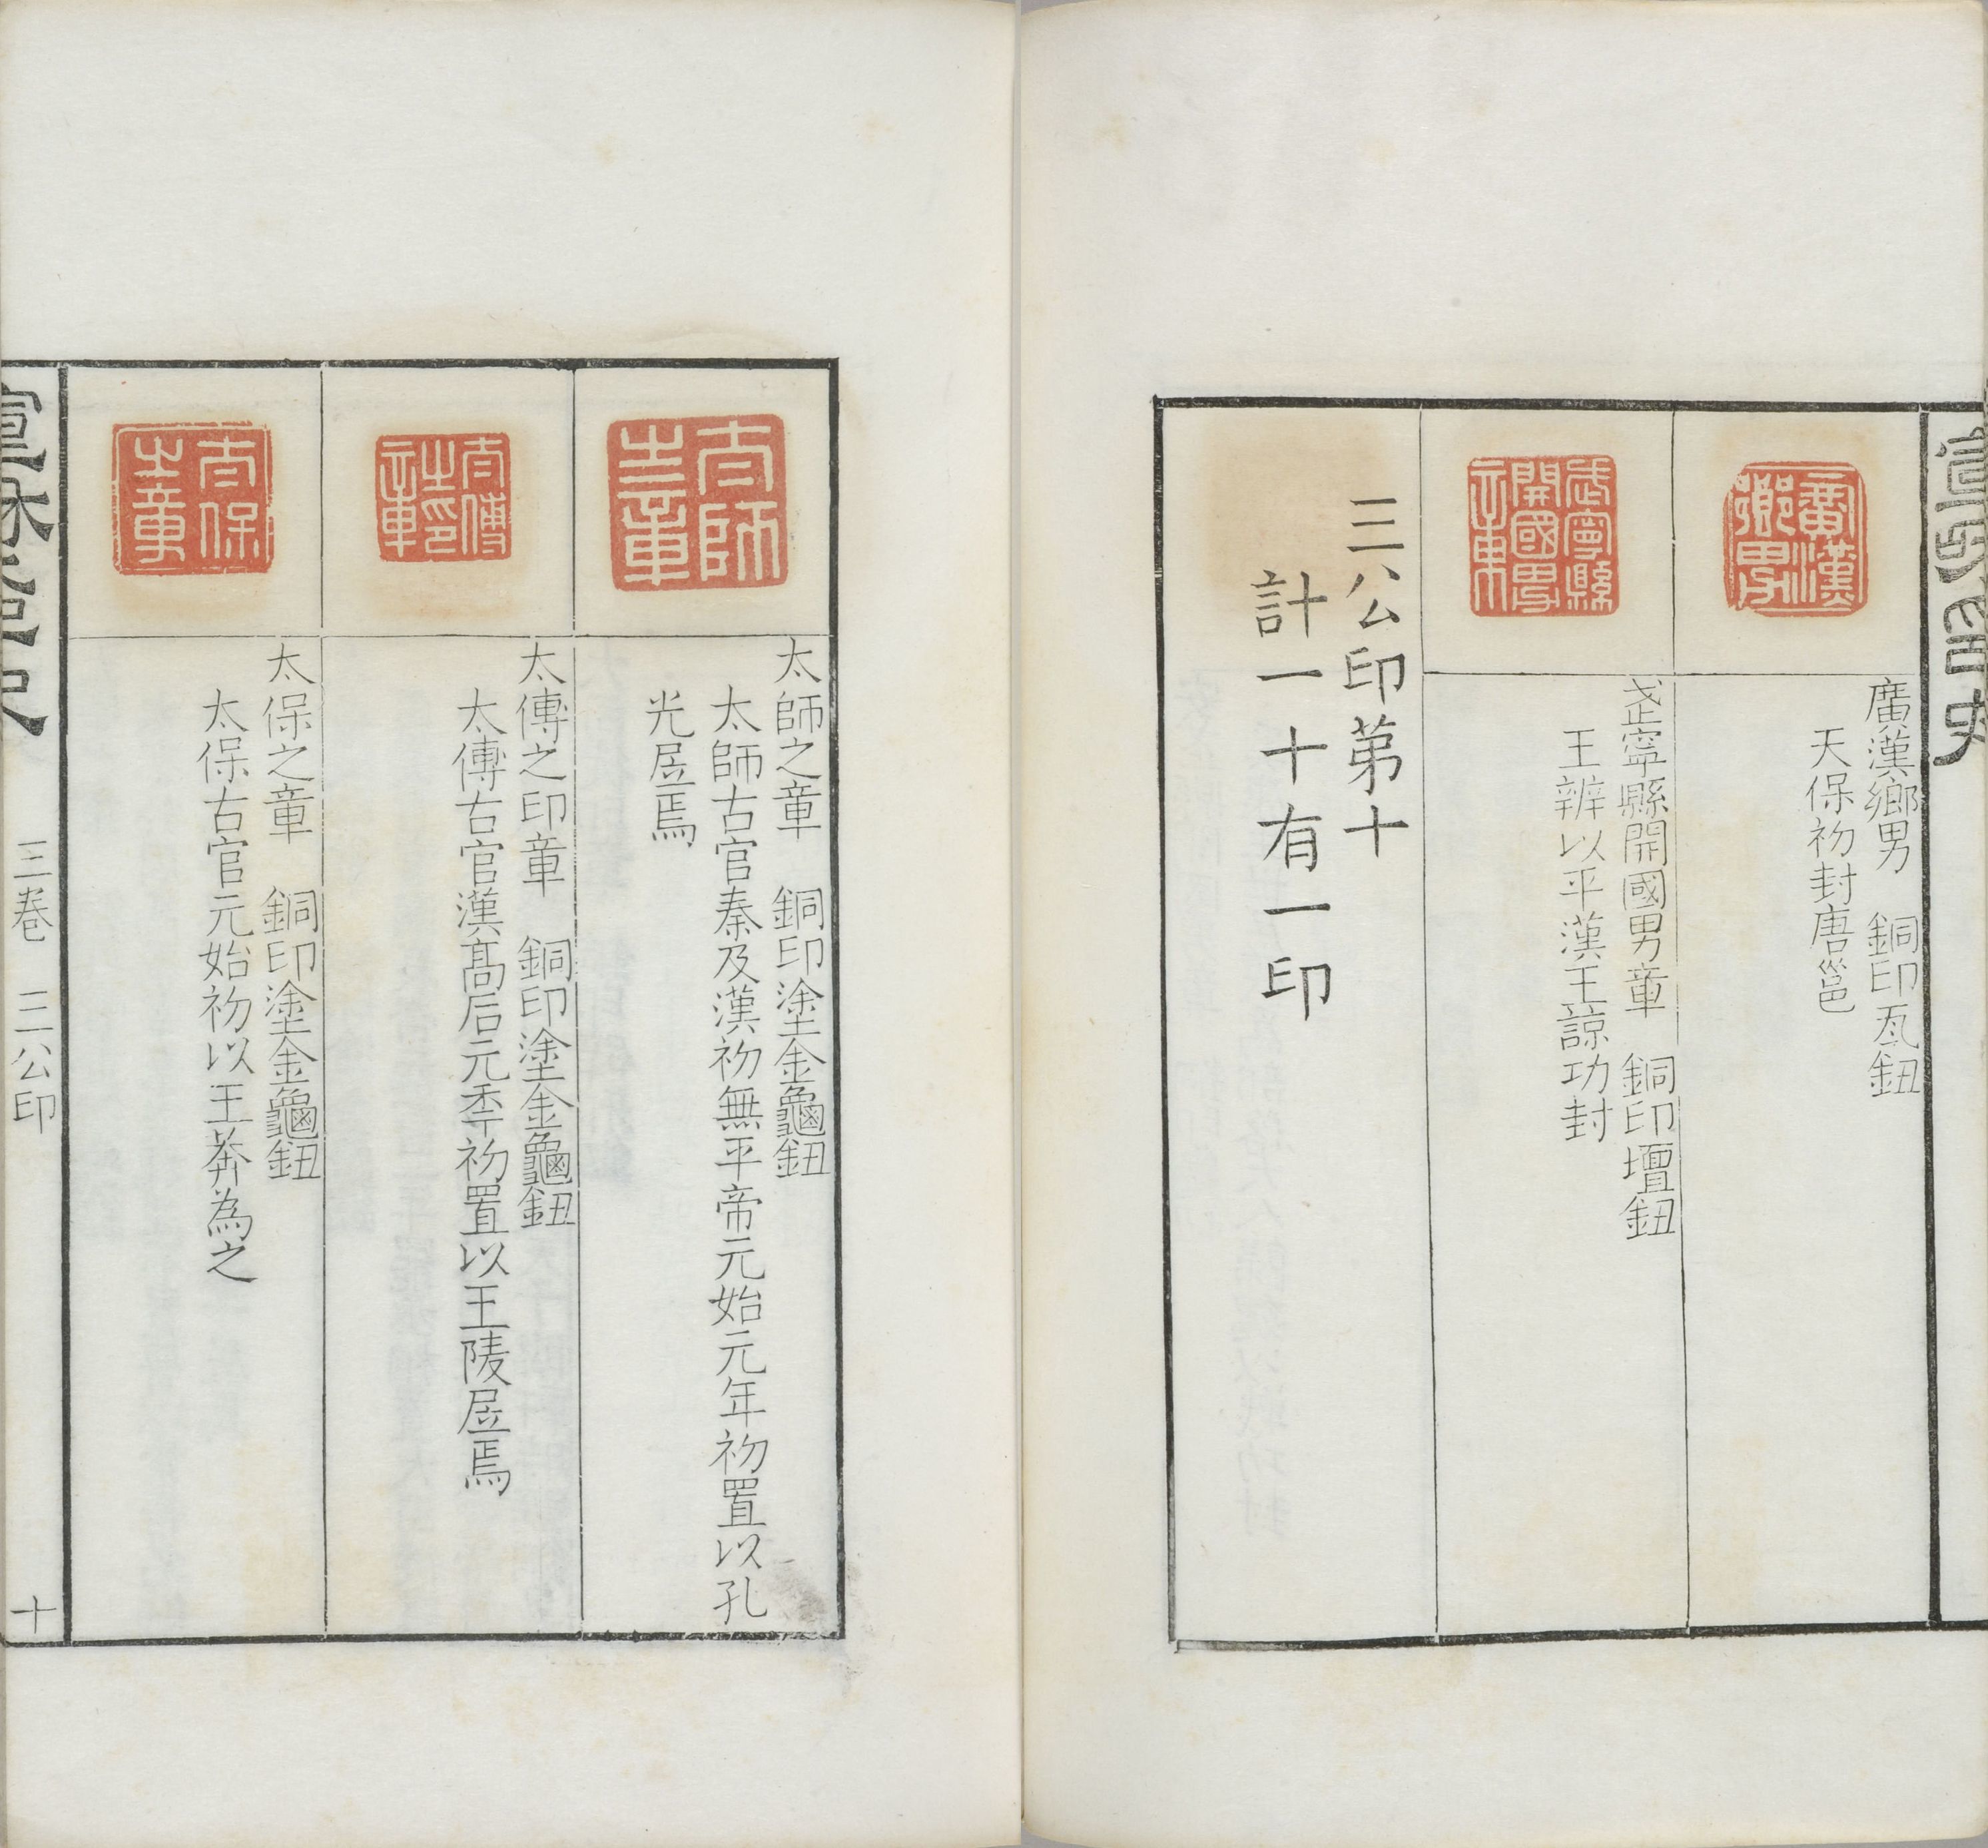 廣漢鄉男
廣漢鄉男　銅印瓦鈕
天保初封唐邕
武寧縣開國男章
武寧縣開國男章　銅印壇鈕
王辨以平漢王諒功封
三公印第十
計一十有一印
太師之章
太師之章　銅印塗金龜鈕
太師古官秦及漢初無平帝元始元年初置以孔
光居焉
太傅之印章
太傅之印章　銅印塗金龜鈕
太傅古官漢高后元秊初置以王陵居焉
太保之章
太保之章　銅印塗金龜鈕
太保古官元始初以王莽為之
三卷　三公印　十